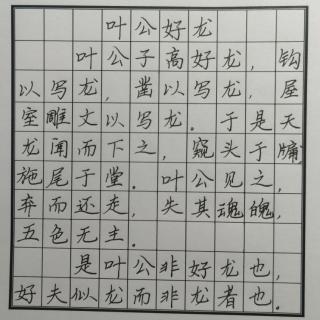 叶公好龙
叶公子高好龙，钩
以写龙，凿以写龙，屋
室雕文以写龙．于是天
龙闻而下之，窥头于牖，
施尾于堂．叶公见之，
弃而还走，失其魂魄，
五色无主．
是叶公非好龙也，
好夫似龙而非龙者也．